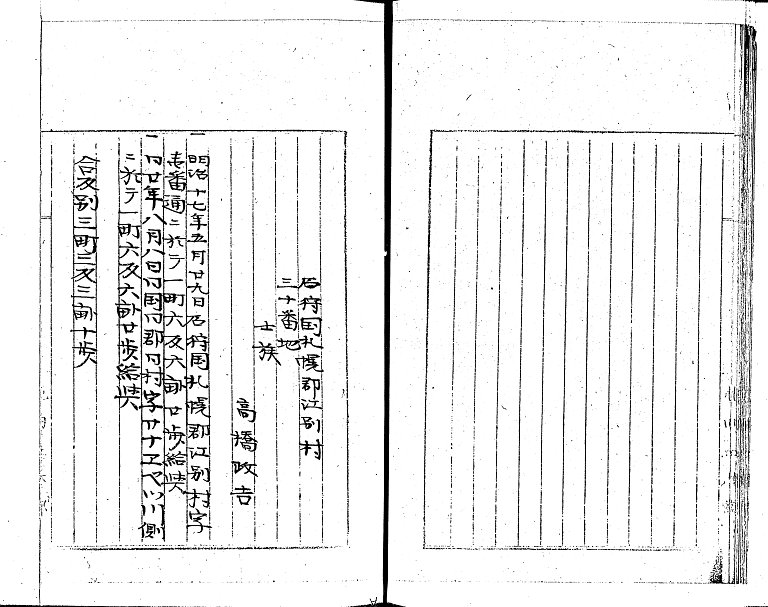 石狩国札幌郡江別村
三十番地
士族
高橋政吉
一明治十七年五月廿九日石狩国札幌郡江別村字
壱番通ニ於テ一町六反六畝廿歩給與
一同廿年八月八日同国同郡同村字
川側
ニ於テ一町六反六畝廿歩給與
合反別三町三反三畝十歩